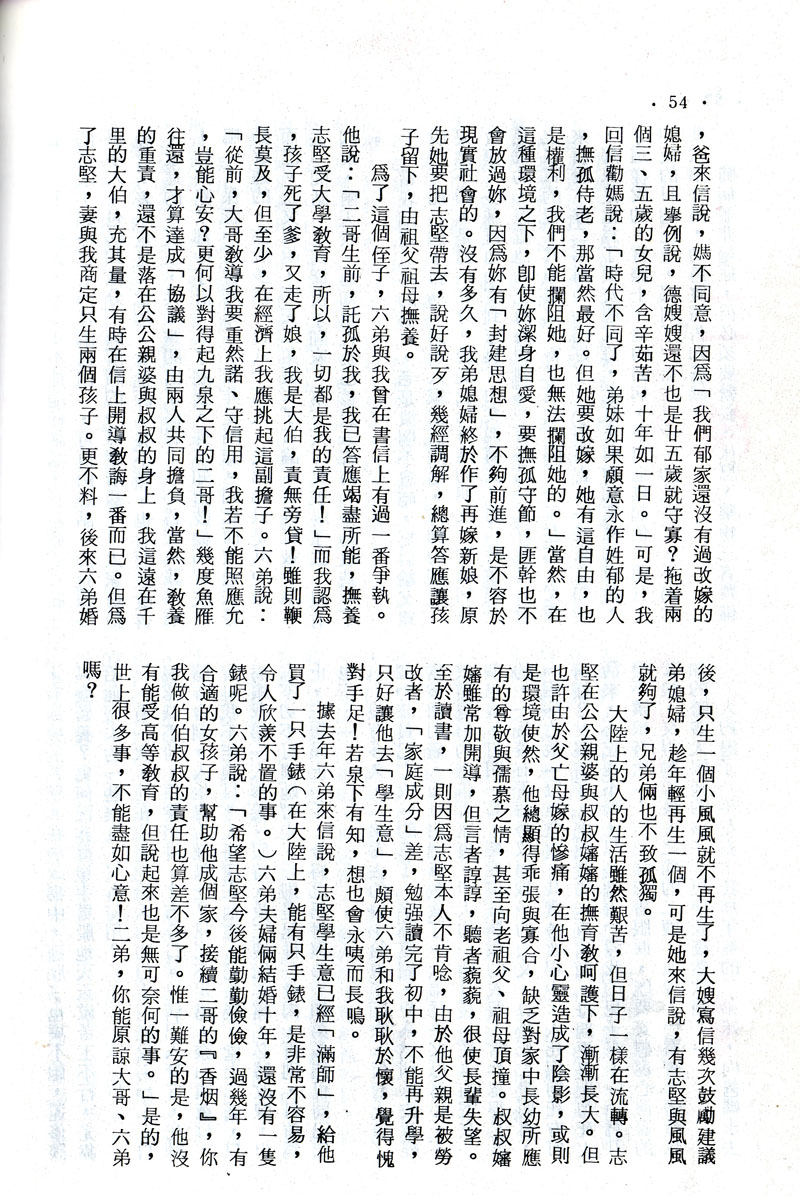 · 54 ·
，爸來信說，媽不同意，因為「我們郁家還沒有過改嫁的
媳婦，且舉例說，德嫂嫂還不也是廿五歲就守寡？拖着兩
個三、五歲的女兒，含辛茹苦，十年如一日。」可是，我
回信勸媽說：「時代不同了，弟妹如果願意永作姓郁的人
，撫孤侍老，那當然最好。但她要改嫁，她有這自由，也
是權利，我們不能攔阻她，也無法攔阻她的。」當然，在
這種環境之下，卽使妳潔身自愛，要撫孤守節，匪幹也不
會放過妳，因為妳有「封建思想」，不夠前進，是不容於
現實社會的。沒有多久，我弟媳婦終於作了再嫁新娘，原
先她要把志堅帶去，說好說歹，幾經調解，總算答應讓孩
子留下，由祖父祖母撫養。
為了這個侄子，六弟與我曾在書信上有過一番爭執。
他說：「二哥生前，託孤於我，我已答應竭盡所能，撫養
志堅受大學敎育，所以，一切都是我的責任！」而我認為
，孩子死了爹，又走了娘，我是大伯，責無旁貸！雖則鞭
長莫及，但至少，在經濟上我應挑起這副擔子。六弟說：
「從前，大哥敎導我要重然諾、守信用，我若不能照應允
，豈能心安？更何以對得起九泉之下的二哥！」幾度魚雁
往還，才算達成「協議」，由兩人共同擔負，當然，敎養
的重責，還不是落在公公親婆與叔叔的身上，我這遠在千
里的大伯，充其量，有時在信上開導敎誨一番而已。但為
了志堅，妻與我商定只生兩個孩子。更不料，後來六弟婚
後，只生一個小風風就不再生了，大嫂寫信幾次鼓勵建議
弟媳婦，趁年輕再生一個，可是她來信說，有志堅與風風
就夠了，兄弟倆也不致孤獨。
大陸上的人的生活雖然艱苦，但日子一樣在流轉。志
堅在公公親婆與叔叔嬸嬸的撫育敎呵護下，漸漸長大。但
也許由於父亡母嫁的慘痛，在他小心靈造成了陰影，或則
是環境使然，他總顯得乖張與寡合，缺乏對家中長幼所應
有的尊敬與儒慕之情，甚至向老祖父、祖母頂撞。叔叔嬸
嬸雖常加開導，但言者諄諄，聽者藐藐，很使長輩失望。
至於讀書，一則因為志堅本人不肯唸，由於他父親是被勞
改者，「家庭成分」差，勉强讀完了初中，不能再升學，
只好讓他去「學生意」，頗使六弟和我耿耿於懷，覺得愧
對手足！若泉下有知，想也會永咦而長鳴。
據去年六弟來信說，志堅學生意已經「滿師」，給他
買了一只手錶（在大陸上，能有只手錶，是非常不容易，
令人欣羨不置的事。）六弟夫婦倆結婚十年，還沒有一隻
錶呢。六弟說：「希望志堅今後能勤勤儉儉，過幾年，有
合適的女孩子，幫助他成個家，接續二哥的『香烟』，你
我做伯伯叔叔的責任也算差不多了。惟一難安的是，他沒
有能受高等敎育，但說起來也是無可奈何的事。」是的，
世上很多事，不能盡如心意！二弟，你能原諒大哥、六弟
嗎？